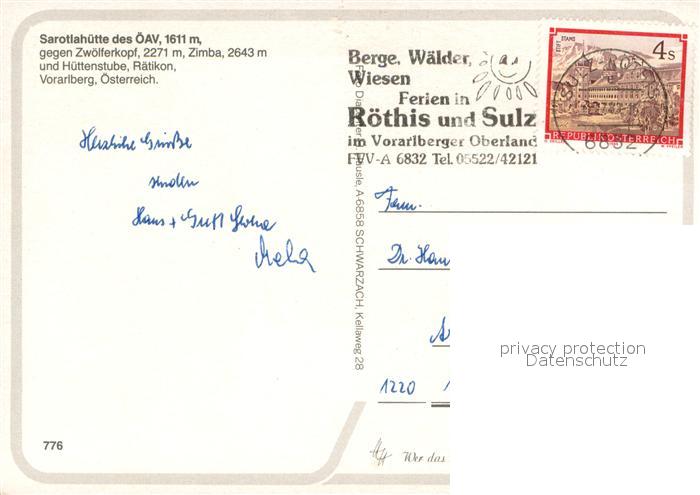 Sarotlahütte des ÖAV, 1611 m,
gegen Zwölferkopf, 2271 m, Zimba, 2643 m
und Hüttenstube, Rätikon,
Vorarlberg, Österreich.
Herzliche Grüße
senden
Hans +
776
Berge, Wälder,
Wiesen
Ferien in
Röthis und Sulz
im Vorarlberger Oberland
FVV-A 6832 Tel. 05522/42121
STIFT STAMS
4 S
REPUBLIK ÖSTERREICH
6832
A-6858 SCHWARZACH, Kellaweg 28
Fam.
Dr.
1220
Wer das
privacy protection
Datenschutz